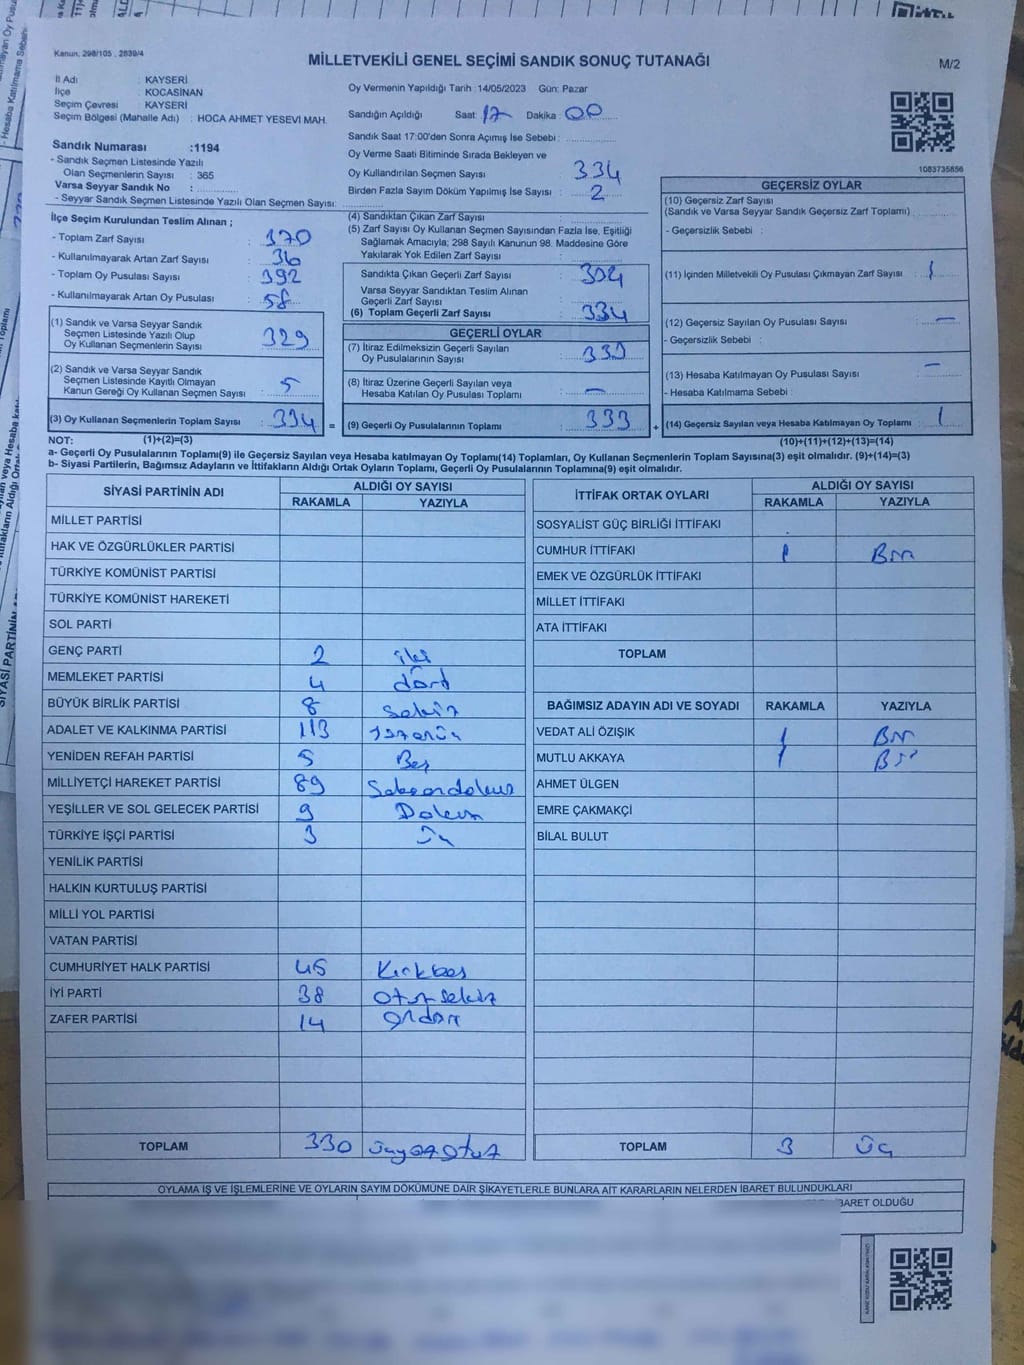 Kanun, 298/105 , 2839/4
MİLLETVEKİLİ GENEL SEÇİMİ SANDIK SONUÇ TUTANAĞI
M/2
İl Adı : KAYSERİ
İlçe : KOCASİNAN
Seçim Çevresi : KAYSERİ
Seçim Bölgesi (Mahalle Adı) : HOCA AHMET YESEVİ MAH.
Oy Vermenin Yapıldığı Tarih :14/05/2023 Gün: Pazar
Sandığın Açıldığı Saat: 17 Dakika : 00
Sandık Saat 17:00'den Sonra Açımış İse Sebebi :
Oy Verme Saati Bitiminde Sırada Bekleyen ve
Oy Kullandırılan Seçmen Sayısı : 334
Birden Fazla Sayım Döküm Yapılmış İse Sayısı : 2
1083735856
Sandık Numarası :1194
- Sandık Seçmen Listesinde Yazılı
Olan Seçmenlerin Sayısı : 365
Varsa Seyyar Sandık No :
- Seyyar Sandık Seçmen Listesinde Yazılı Olan Seçmen Sayısı:
İlçe Seçim Kurulundan Teslim Alınan ;
- Toplam Zarf Sayısı : 370
- Kullanılmayarak Artan Zarf Sayısı : 36
- Toplam Oy Pusulası Sayısı : 392
- Kullanılmayarak Artan Oy Pusulası : 58
(1) Sandık ve Varsa Seyyar Sandık
Seçmen Listesinde Yazılı Olup
Oy Kullanan Seçmenlerin Sayısı : 329
(2) Sandık ve Varsa Seyyar Sandık
Seçmen Listesinde Kayıtlı Olmayan
Kanun Gereği Oy Kullanan Seçmen Sayısı : 5
(3) Oy Kullanan Seçmenlerin Toplam Sayısı : 334 =
(4) Sandıktan Çıkan Zarf Sayısı :
(5) Zarf Sayısı Oy Kullanan Seçmen Sayısından Fazla İse, Eşitliği
Sağlamak Amacıyla; 298 Sayılı Kanunun 98. Maddesine Göre
Yakılarak Yok Edilen Zarf Sayısı :
Sandıkta Çıkan Geçerli Zarf Sayısı : 334
Varsa Seyyar Sandıktan Teslim Alınan
Geçerli Zarf Sayısı :
(6) Toplam Geçerli Zarf Sayısı : 334
GEÇERLİ OYLAR
(7) İtiraz Edilmeksizin Geçerli Sayılan
Oy Pusulalarının Sayısı : 333
(8) İtiraz Üzerine Geçerli Sayılan veya
Hesaba Katılan Oy Pusulası Toplamı : —
(9) Geçerli Oy Pusulalarının Toplamı : 333 +
GEÇERSİZ OYLAR
(10) Geçersiz Zarf Sayısı
(Sandık ve Varsa Seyyar Sandık Geçersiz Zarf Toplamı) :
- Geçersizlik Sebebi :
(11) İçinden Milletvekili Oy Pusulası Çıkmayan Zarf Sayısı : 1
(12) Geçersiz Sayılan Oy Pusulası Sayısı : —
- Geçersizlik Sebebi :
(13) Hesaba Katılmayan Oy Pusulası Sayısı : —
- Hesaba Katılmama Sebebi :
(14) Geçersiz Sayılan veya Hesaba Katılmayan Oy Toplamı : 1
NOT: (1)+(2)=(3)
(10)+(11)+(12)+(13)=(14)
a- Geçerli Oy Pusulalarının Toplamı(9) ile Geçersiz Sayılan veya Hesaba katılmayan Oy Toplamı(14) Toplamları, Oy Kullanan Seçmenlerin Toplam Sayısına(3) eşit olmalıdır. (9)+(14)=(3)
b- Siyasi Partilerin, Bağımsız Adayların ve İttifakların Aldığı Ortak Oyların Toplamı, Geçerli Oy Pusulalarının Toplamına(9) eşit olmalıdır.
SİYASİ PARTİNİN ADI ALDIĞI OY SAYISI
RAKAMLA YAZIYLA
MİLLET PARTİSİ
HAK VE ÖZGÜRLÜKLER PARTİSİ
TÜRKİYE KOMÜNİST PARTİSİ
TÜRKİYE KOMÜNİST HAREKETİ
SOL PARTİ
GENÇ PARTİ 2 iki
MEMLEKET PARTİSİ 4 dört
BÜYÜK BİRLİK PARTİSİ 8 sekiz
ADALET VE KALKINMA PARTİSİ 113
YENİDEN REFAH PARTİSİ 5 Beş
MİLLİYETÇİ HAREKET PARTİSİ 89 Seksendokuz
YEŞİLLER VE SOL GELECEK PARTİSİ 9 Dokuz
TÜRKİYE İŞÇİ PARTİSİ 3 Üç
YENİLİK PARTİSİ
HALKIN KURTULUŞ PARTİSİ
MİLLİ YOL PARTİSİ
VATAN PARTİSİ
CUMHURİYET HALK PARTİSİ 45 Kırkbeş
İYİ PARTİ 38 Otuzsekiz
ZAFER PARTİSİ 14 Ondört
TOPLAM 330 üçyüzotuz
İTTİFAK ORTAK OYLARI ALDIĞI OY SAYISI
RAKAMLA YAZIYLA
SOSYALİST GÜÇ BİRLİĞİ İTTİFAKI
CUMHUR İTTİFAKI 1 Bir
EMEK VE ÖZGÜRLÜK İTTİFAKI
MİLLET İTTİFAKI
ATA İTTİFAKI
TOPLAM
BAĞIMSIZ ADAYIN ADI VE SOYADI RAKAMLA YAZIYLA
VEDAT ALİ ÖZIŞIK 1 Bir
MUTLU AKKAYA 1 Bir
AHMET ÜLGEN
EMRE ÇAKMAKÇİ
BİLAL BULUT
TOPLAM 3 üç
OYLAMA İŞ VE İŞLEMLERİNE VE OYLARIN SAYIM DÖKÜMÜNE DAİR ŞİKAYETLERLE BUNLARA AİT KARARLARIN NELERDEN İBARET BULUNDUKLARI
BARET OLDUĞU